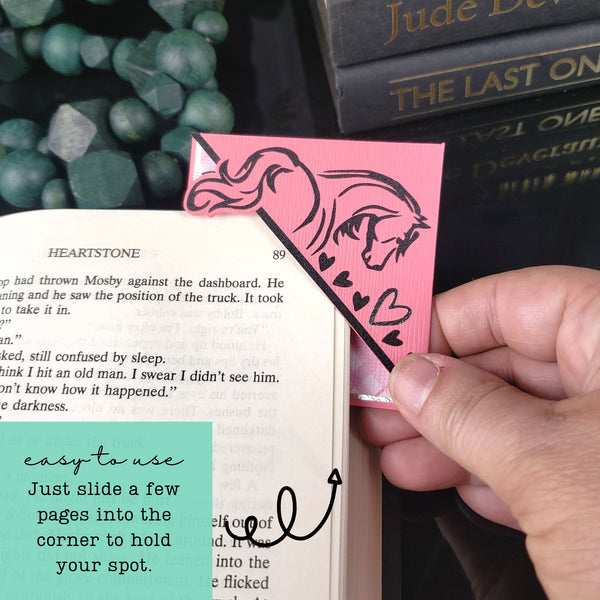 Jude Dev
THE LAST ON
HEARTSTONE 89
op had thrown Mosby against the dashboard. He
ning and he saw the position of the truck. It took
to take it in.
?"
an."
sked, still confused by sleep.
hink I hit an old man. I swear I didn't see him.
on't know how it happened."
e darkness.
easy to use
Just slide a few
pages into the
corner to hold
your spot.
himself out of
d. It was
leaned into the
He flicked